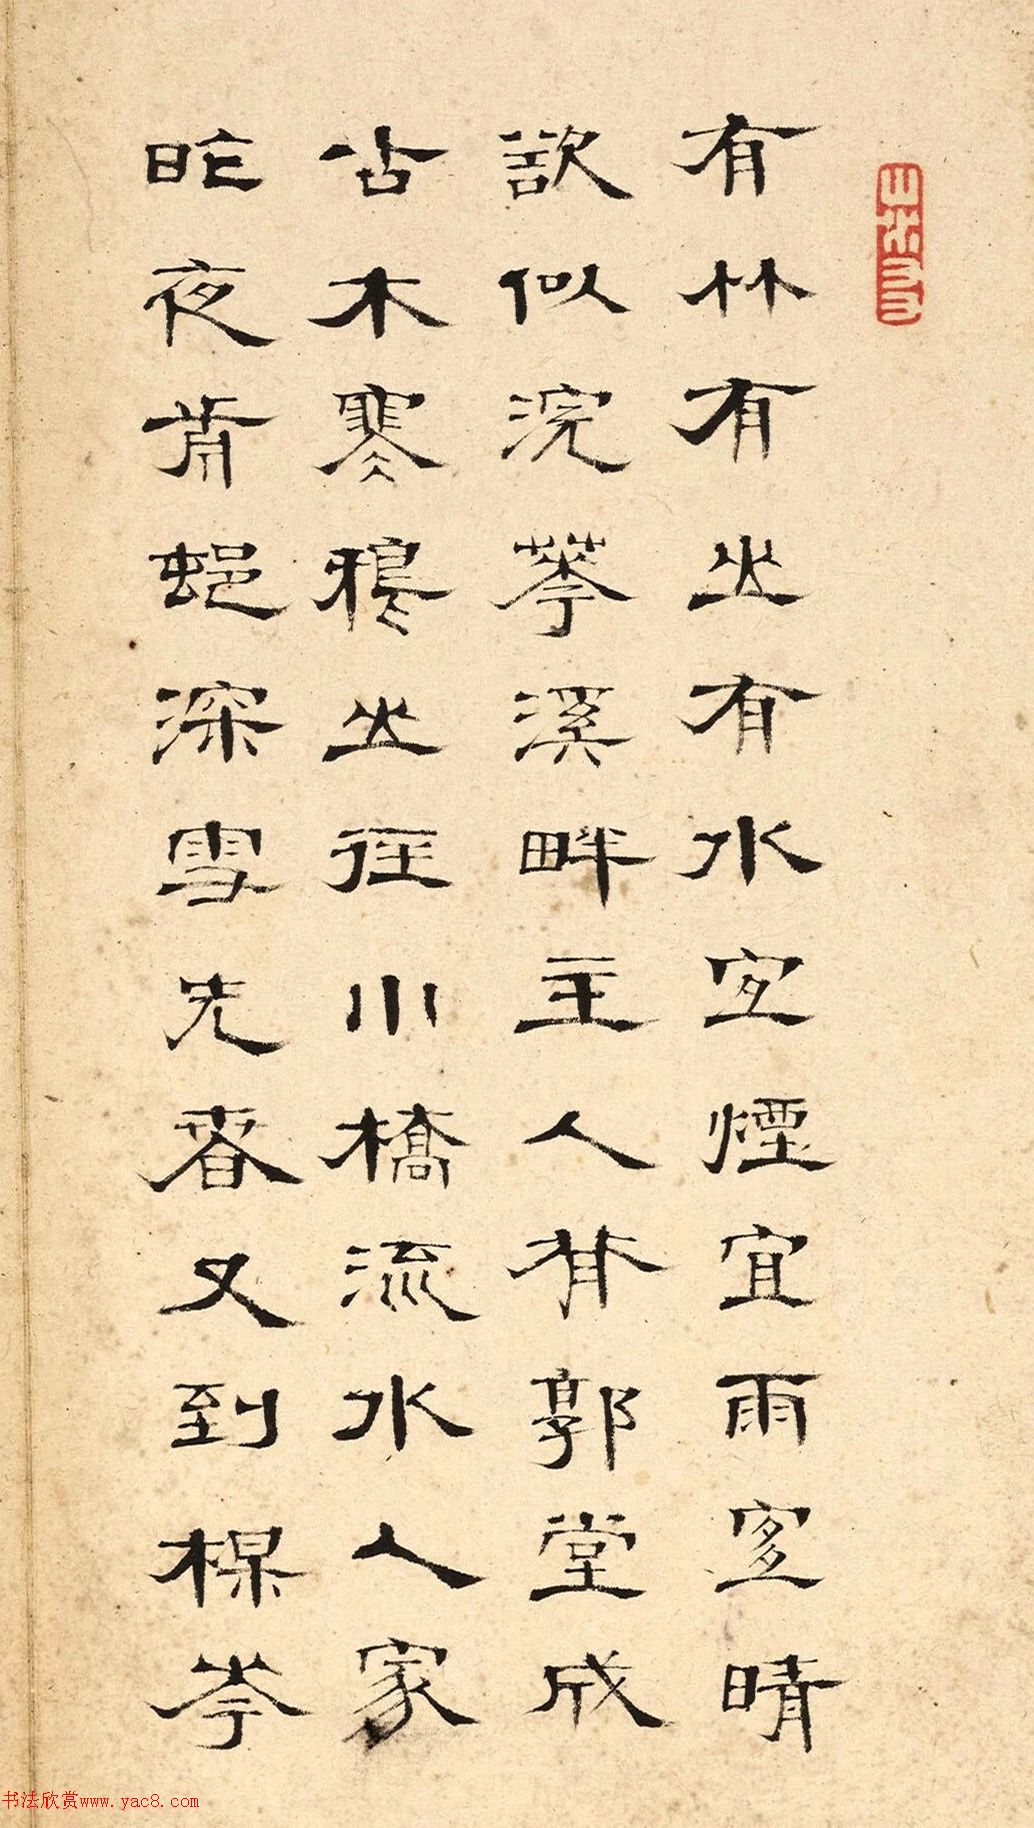 有林有山有水宜煙宜雨宜晴
欲似浣華溪畔主人背郭堂成
古木寒鴉山徑小橋流水人家
昨夜前邨深雪先春又到楳華
书法欣赏www.yac8.com